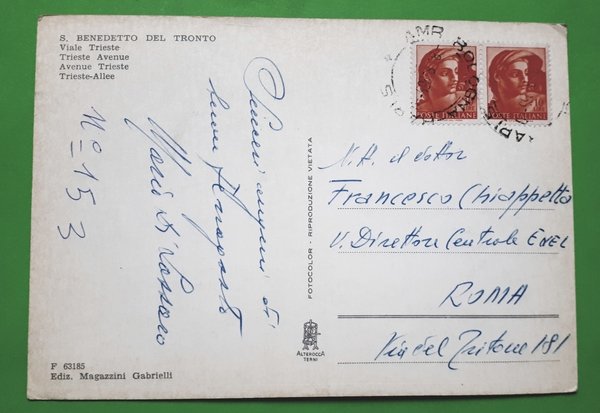 S. BENEDETTO DEL TRONTO
Viale Trieste
Trieste Avenue
Avenue Trieste
Trieste-Allee
N° 153
Sinceri auguri di
buon ferragosto
Mario Di
F 63185
Ediz. Magazzini Gabrielli
FOTOCOLOR - RIPRODUZIONE VIETATA
ALTEROCCA
TERNI
POSTE ITALIANE
POSTE ITALIANE
AMB
BOLOGNA
N.H. il dottor
Francesco Chiappetta
V. Direttore Centrale ENEL
ROMA
Via del Tritone 181